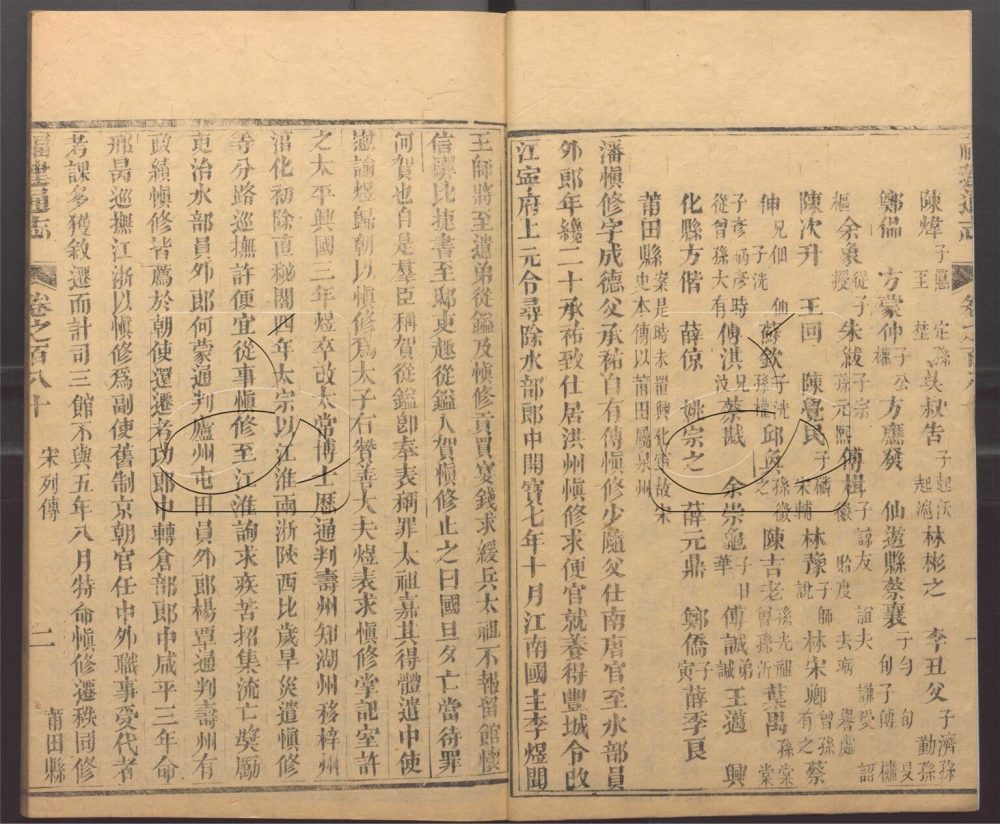 陳煒 子㥶 定孫 至 埜 吳叔吿 子起沃 起渑 林彬之 李丑父 子濟孫 勤孫
鄭偘 方蒙仲 子公權 方應發 仙遊縣蔡襄 子勻 旬 旻 旬子傳 㯤
樞 余象 從子授 朱紱 子宗 孫元熙 傳楫 子諒友 誼夫 謙受 詔
陳次升 王回 陳覺民 子麟 宋輔 林豫 子師說 林宋卿 曾孫有之 蔡
伸 兄佃 子洸 伷 蘇欽 子洸 孫權 邱奐 孫徵之 陳吉老 孫光祖 曾孫沂 葉禺 孫棠
子彥炳 彥時 從曾孫大有 傅淇 兄汶 蔡戡 余崇龜 子日華 傅誠 弟誠 王邁 興
化縣方偕 薛倞 姚宗之 薛元鼎 鄭僑 子寅 薛季良
莆田縣 案是時未置興化軍故宋史本傳以莆田屬泉州
潘愼修字成德父承祐自有傳愼修少隨父仕南唐官至水部員
外郎年纔二十承祐致仕居洪州愼修求便官就養得豐城令改
江寧府上元令尋除水部郎中開寶七年十月江南國主李煜聞
王師將至遣弟從鎰及愼修貢買宴錢求緩兵太祖不報留館懷
信驛比捷書至邸吏趣從鎰入賀愼修止之曰國旦夕亡當待罪
何賀也自是羣臣稱賀從鎰卽奉表稱罪太祖嘉其得體遣中使
慰諭煜歸朝以愼修爲太子右贊善大夫煜表求愼修掌記室許
之太平興國三年煜卒改太常博士歷通判壽州知湖州移梓州
淳化初除直秘閣四年太宗以江淮兩浙陝西比歲旱災遣愼修
等分路巡撫許便宜從事愼修至江淮詢求疾苦招集流亡奬勵
吏治水部員外郎何蒙通判廬州屯田員外郎楊覃通判壽州有
政績愼修皆薦於朝使還遷考功郎中轉倉部郎中咸平三年命
邢昺巡撫江浙以愼修爲副使舊制京朝官任中外職事受代者
考課多獲敘遷而計司三館不與五年八月特命愼修遷秩同修
福建通志 卷之百八十 宋列傳 二 莆田縣